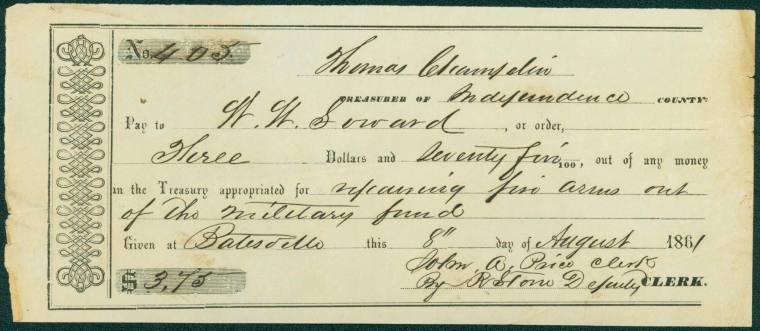 No. 405
Thomas Champlin
TREASURER OF Independence COUNTY.
Pay to W. W. Soward, or order,
Three Dollars and Seventy five 100, out of any money
in the Treasury appropriated for repairing fire arms out
of the military fund
Given at Batesville this 8" day of August 1861
$ 3,75
John A. Price Clerk
By R Stone Deputy CLERK.